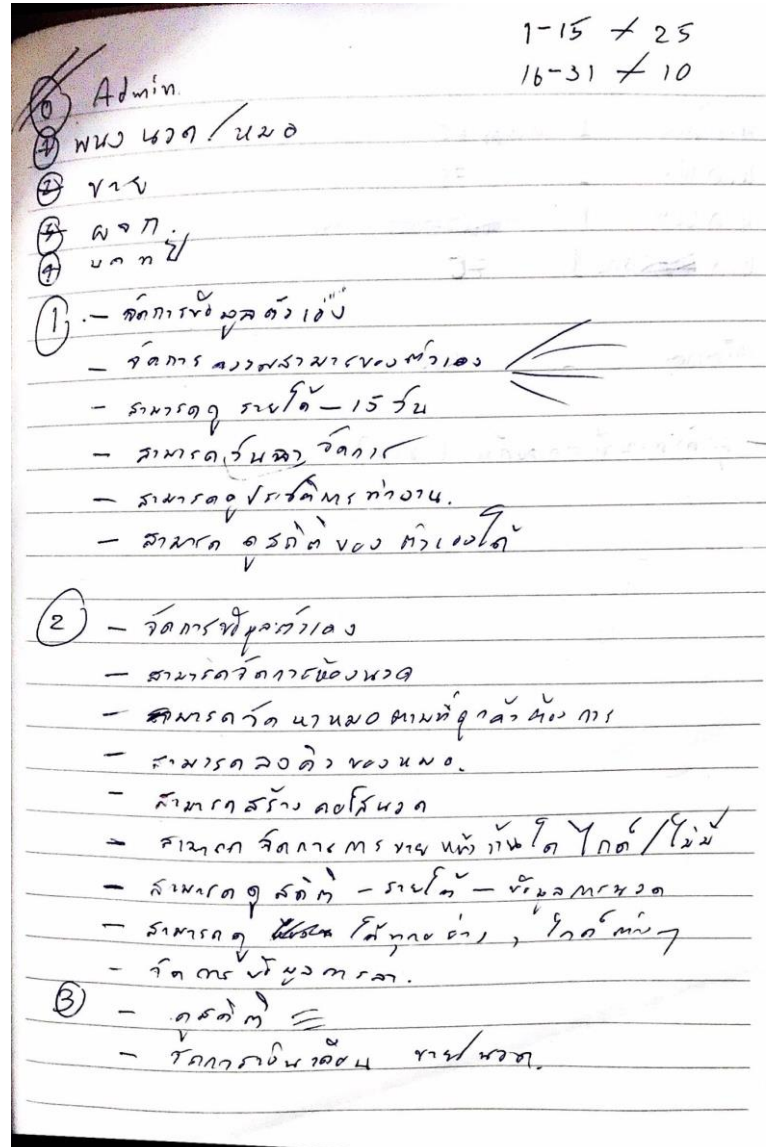 1-15 → 25
16-31 → 10
0 Admin.
1 พนง นวด / หมอ
2 ขาย
3 ผจก.
4
1 - จัดการข้อมูลตัวเอง
- จัดการความสามารถของตัวเอง
- สามารถดู รายได้ - 15 วัน
- สามารถวันลา จัดการ
- สามารถดูประวัติการทำงาน.
- สามารถ ดูสถิติ ของ ตัวเองได้
2 - จัดการข้อมูลตัวเอง
- สามารถจัดการห้องนวด
- สามารถจัด หาหมอตามที่ลูกค้าต้องการ
- สามารถ ลงคิว ของหมอ.
- สามารถสร้าง คอร์สนวด
- สามารถ จัดการการขาย หน้าร้านได้ ไกด์ / ไม่มี
- สามารถดู สถิติ - รายได้ - ข้อมูลการนวด
- สามารถดู ได้ทุกอย่าง , ไกด์ต่างๆ
- จัดการข้อมูลการลา.
3 - ดูสถิติ
- จัดการเงินเดือน ขาย/นวด.